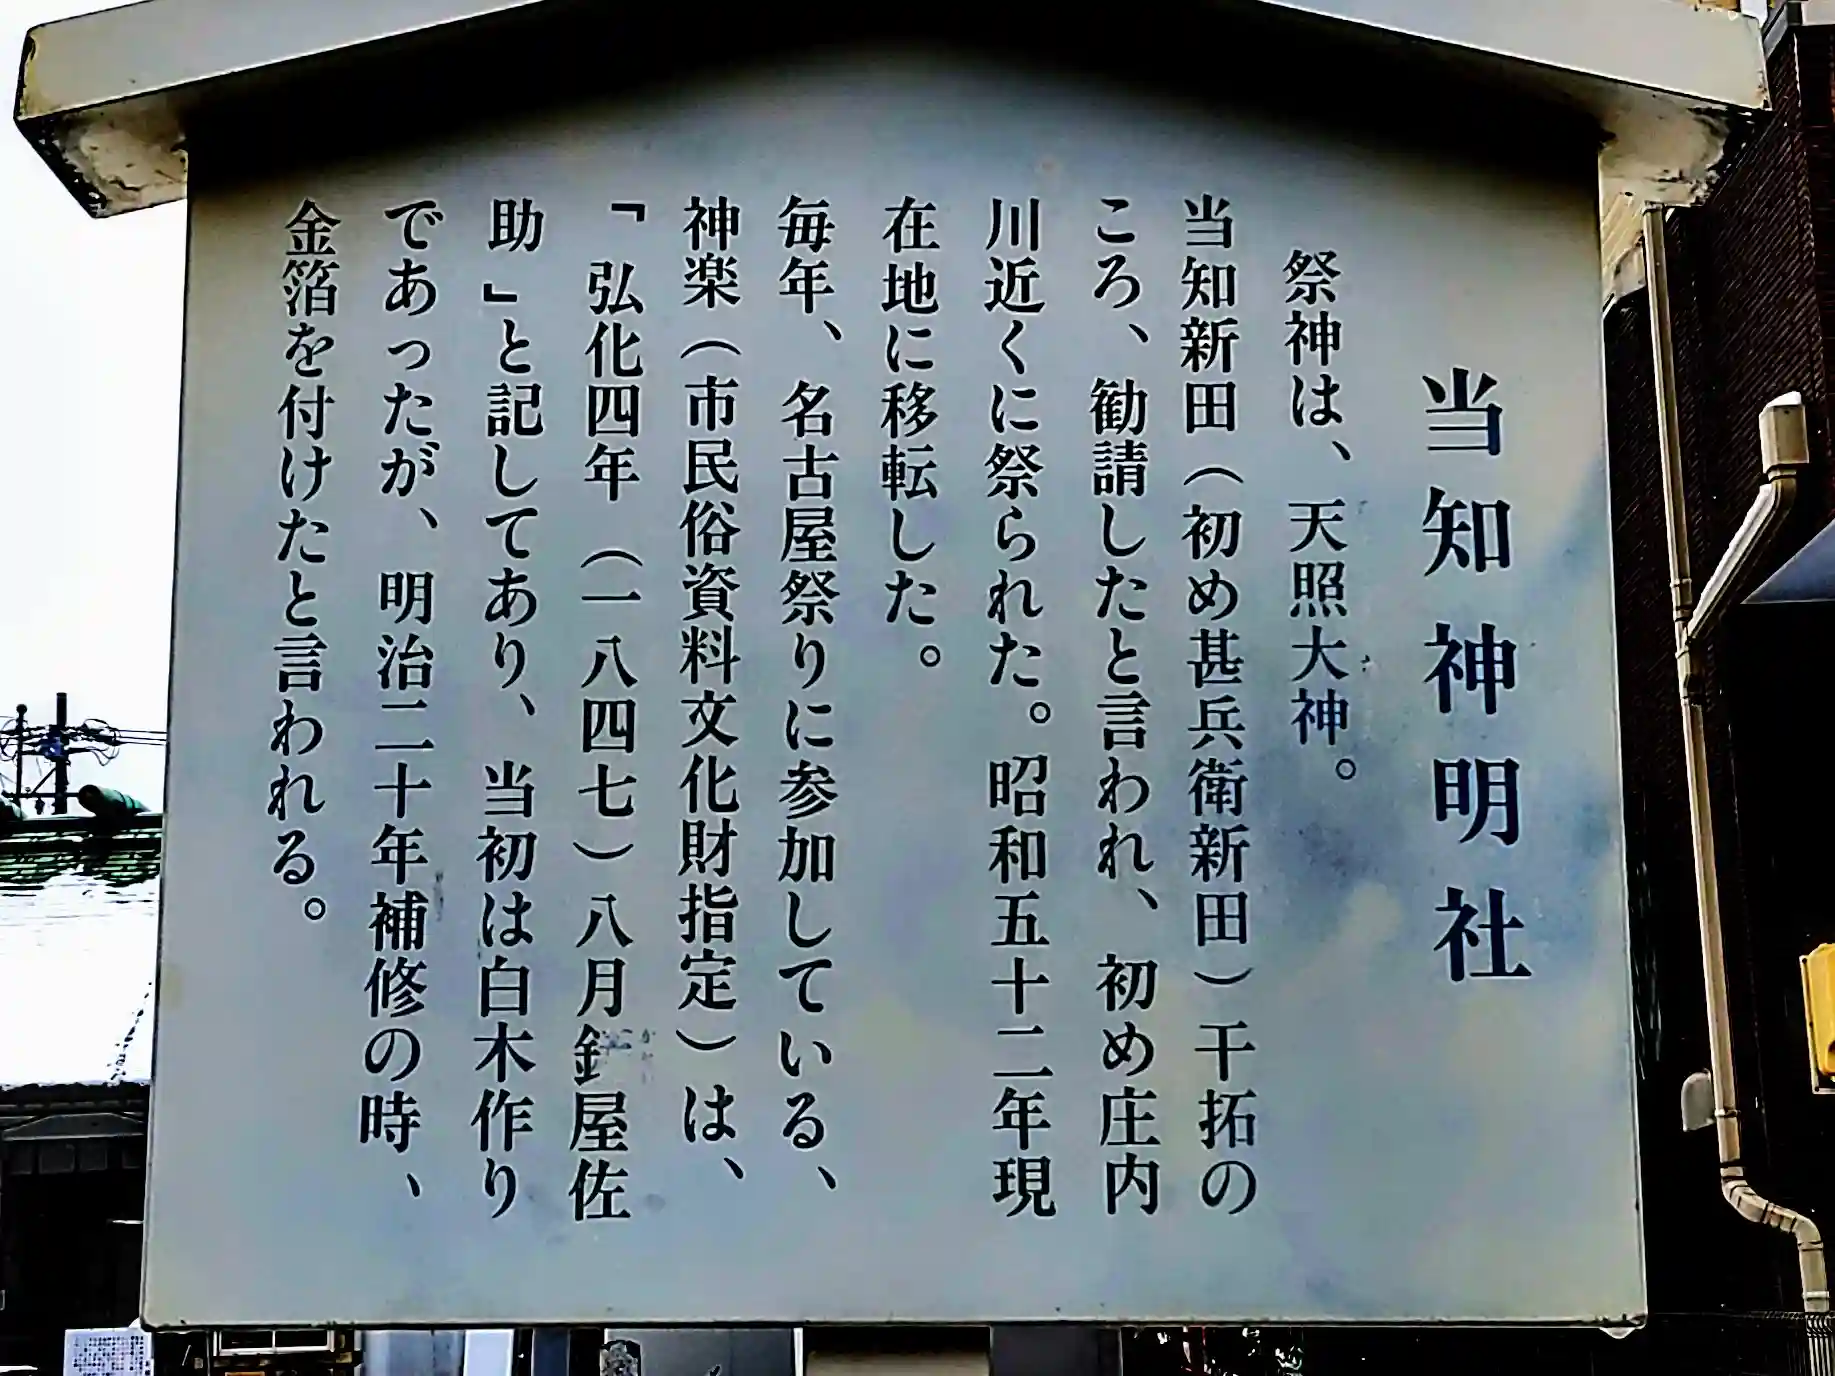 当知神明社
祭神は、天照大神。
当知新田（初め甚兵衛新田）干拓の
ころ、勧請したと言われ、初め庄内
川近くに祭られた。昭和五十二年現
在地に移転した。
毎年、名古屋祭りに参加している、
神楽（市民俗資料文化財指定）は、
「弘化四年（一八四七）八月釻屋佐
助」と記してあり、当初は白木作り
であったが、明治二十年補修の時、
金箔を付けたと言われる。